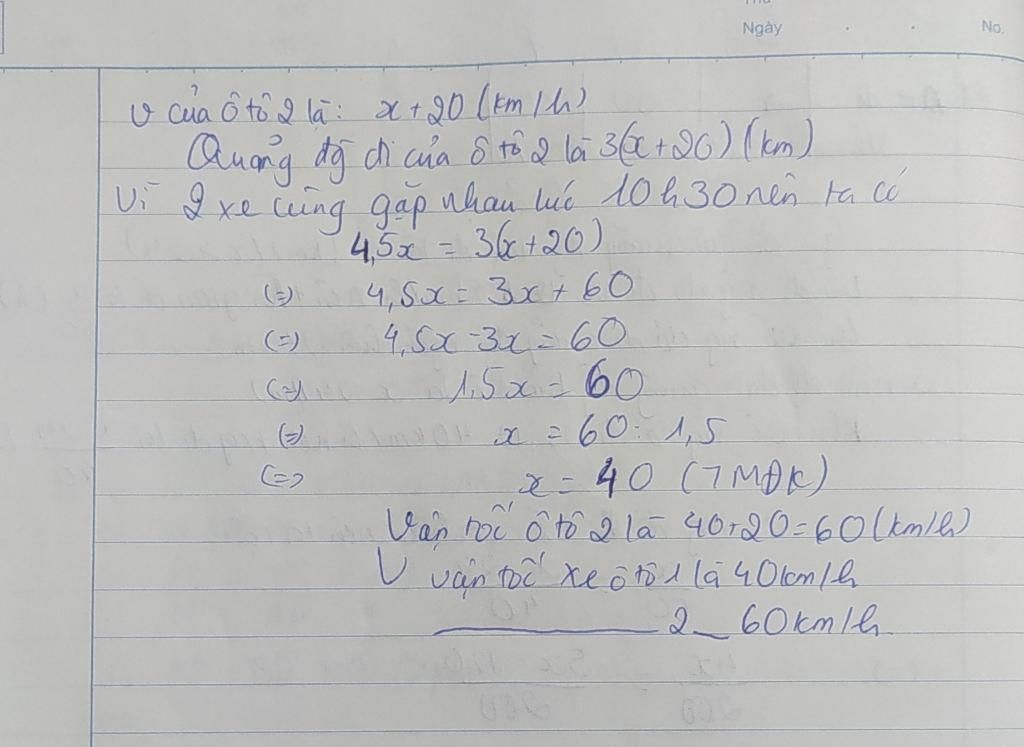 Thứ
Ngày . . No.
v của ô tô 2 là: x + 20 (km/h)
Quảng đg đi của ô tô 2 là 3(x+20) (km)
Vì 2 xe cùng gặp nhau lúc 10h30 nên ta có
4,5x = 3(x+20)
(=) 4,5x = 3x + 60
(=) 4,5x - 3x = 60
(=) 1,5x = 60
(=) x = 60 : 1,5
(=) x = 40 (TMĐK)
Vận tốc ô tô 2 là 40+20=60 (km/h)
V vận tốc xe ô tô 1 là 40km/h
2 60km/h